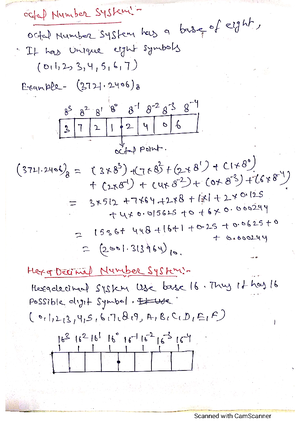 Octal Number System:-
Octal Number System has a base of eight,
It has unique eight symbols
(0,1,2,3,4,5,6,7)
Example- (3721.2406)8
8³ 8² 8¹ 8⁰ 8⁻¹ 8⁻² 8⁻³ 8⁻⁴
3 7 2 1 . 2 4 0 6
octal Point.
(3721.2406)8 = (3×8³)+(7×8²)+(2×8¹)+(1×8⁰)
+ (2×8⁻¹) + (4×8⁻²) + (0×8⁻³)+(6×8⁻⁴)
= 3×512 + 7×64 + 2×8 + 1×1 + 2×0.125
+ 4×0.015625 + 0 + 6×0.000244
= 1536 + 448 + 16 + 1 + 0.25 + 0.0625 + 0
+ 0.000244
= (2001.313964)10.
Hexa Decimal Number System:-
Hexadecimal System use base 16. Thus it has 16
Possible digit symbol.
(0,1,2,3,4,5,6,7,8,9,A,B,C,D,E,F)
16³ 16² 16¹ 16⁰ 16⁻¹ 16⁻² 16⁻³ 16⁻⁴
Scanned with CamScanner